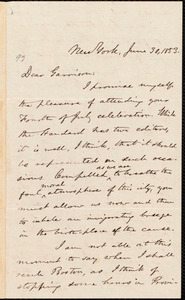 New York, June 30, 1853.
Dear Garrison:
I promise myself
the pleasure of attending your
Fourth of July celebration. While
the Standard has two editors,
it is well, I think, that it should
be represented on such occa-
sions. Compelled, as we are
to breathe the
foul moral atmosphere of this city, you
must allow us now and then
to inhale an invigorating breeze
in the birth-place of the cause.
I am not able at this
moment to say when I shall
reach Boston, as I think of
stopping some hours in Provi-